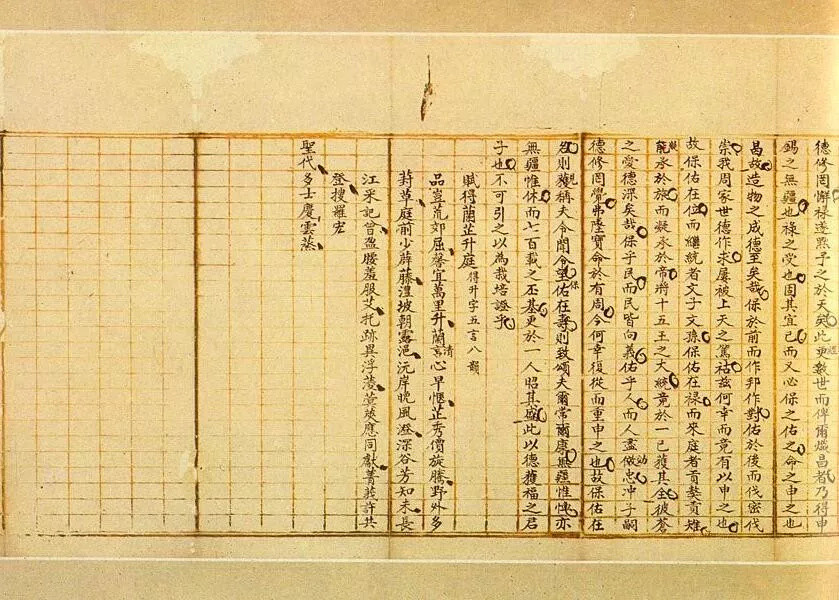 德修罔懈祿遂熙予之於天矣此更數世而俾爾熾昌者乃得申
錫之無疆也祿之受也固其宜已而又必保之佑之命之申之也
昌故造物之成德至矣哉保於前而作邦作對佑於後而伐密伐
崇我周家世德作求屢被上天之篤祜茲何幸而竟有以申之也
故保佑在位而繼統者文子文孫保佑在祿而來庭者貢獒貢雉
龍承於旅而凝承於常將十五王之大統竟於一己獲其全彼蒼
之愛德深矣哉保乎民而民皆向義佑乎人而人盡做忠冲子嗣
德修罔覺弗墜寶命於有周今何幸復從而重申之也故保佑在
名則獲稱夫令聞令望佑在壽則致頌夫爾常爾康無疆惟恤亦
無疆惟休而七百載之丕基更於一人昭其盛此以德獲福之君
子也不可引之以為栽培證乎
賦得蘭芷升庭 得升字五言八韻
品豈荒郊屈馨宜萬里升蘭言心早愜芷秀價旋騰野外多
葑草庭前少薜藤澧坡朝露浥沅岸晚風澄深谷芳知未長
江采記曾盈腰羞服艾托跡異浮菱萱莢應同獻菁莪許共
登搜羅宏
聖代多士慶雲蒸